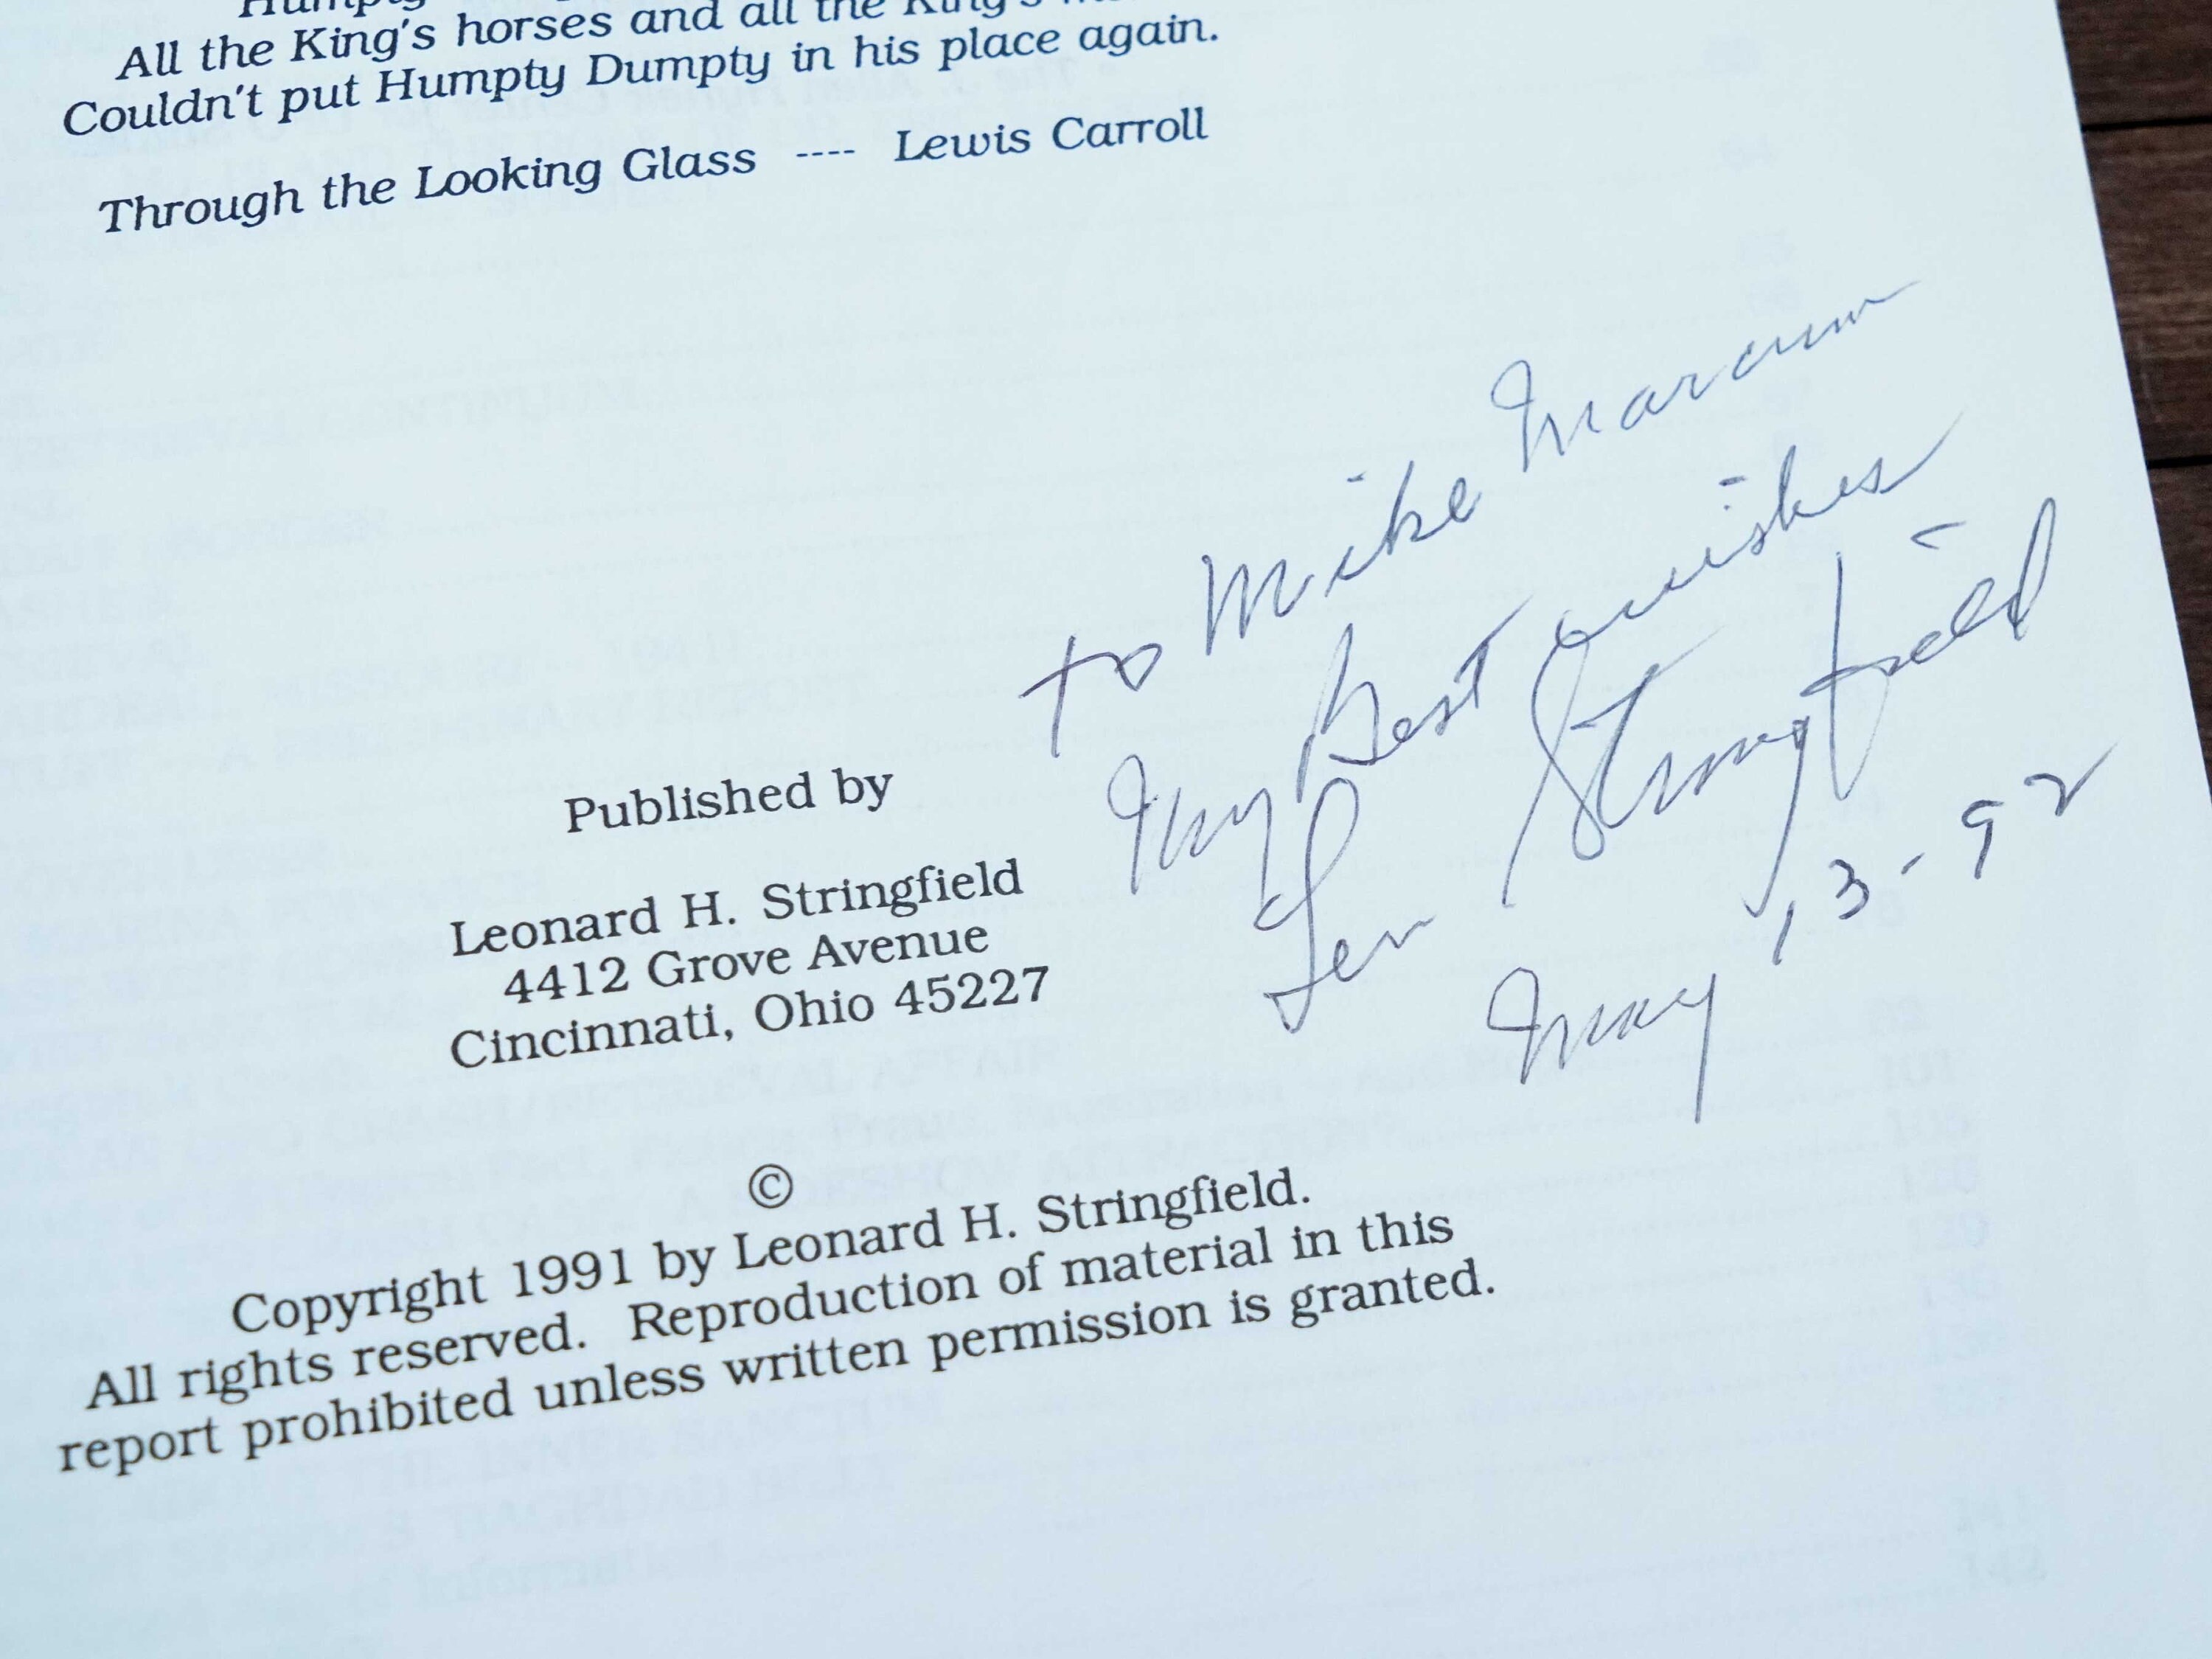 All the King's horses and all the King's
Couldn't put Humpty Dumpty in his place again.
Through the Looking Glass ---- Lewis Carroll
to Mike Marcum
My Best wishes
Len Stringfield
May 13-92
Published by
Leonard H. Stringfield
4412 Grove Avenue
Cincinnati, Ohio 45227
©
Copyright 1991 by Leonard H. Stringfield.
All rights reserved. Reproduction of material in this
report prohibited unless written permission is granted.